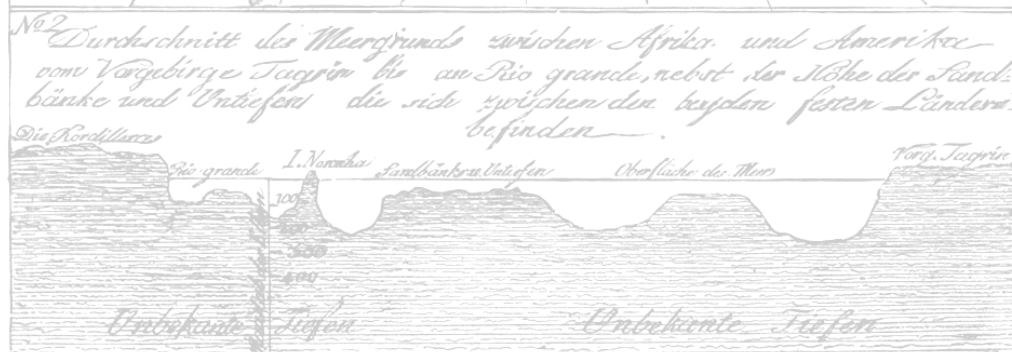 No 2
Durchschnitt des Meergrunds zwischen Afrika und Amerika
vom Vorgebirge Tagrin bis an Rio grande, nebst der Höhe der Sand-
bänke und Untiefen die sich zwischen den beyden festen Ländern
befinden.
Die Kordilleras
Rio grande
I. Noronha
Sandbänke u. Untiefen
Oberfläche des Meers
Vorg. Tagrin
100
300
400
Unbekante Tiefen
Unbekante Tiefen